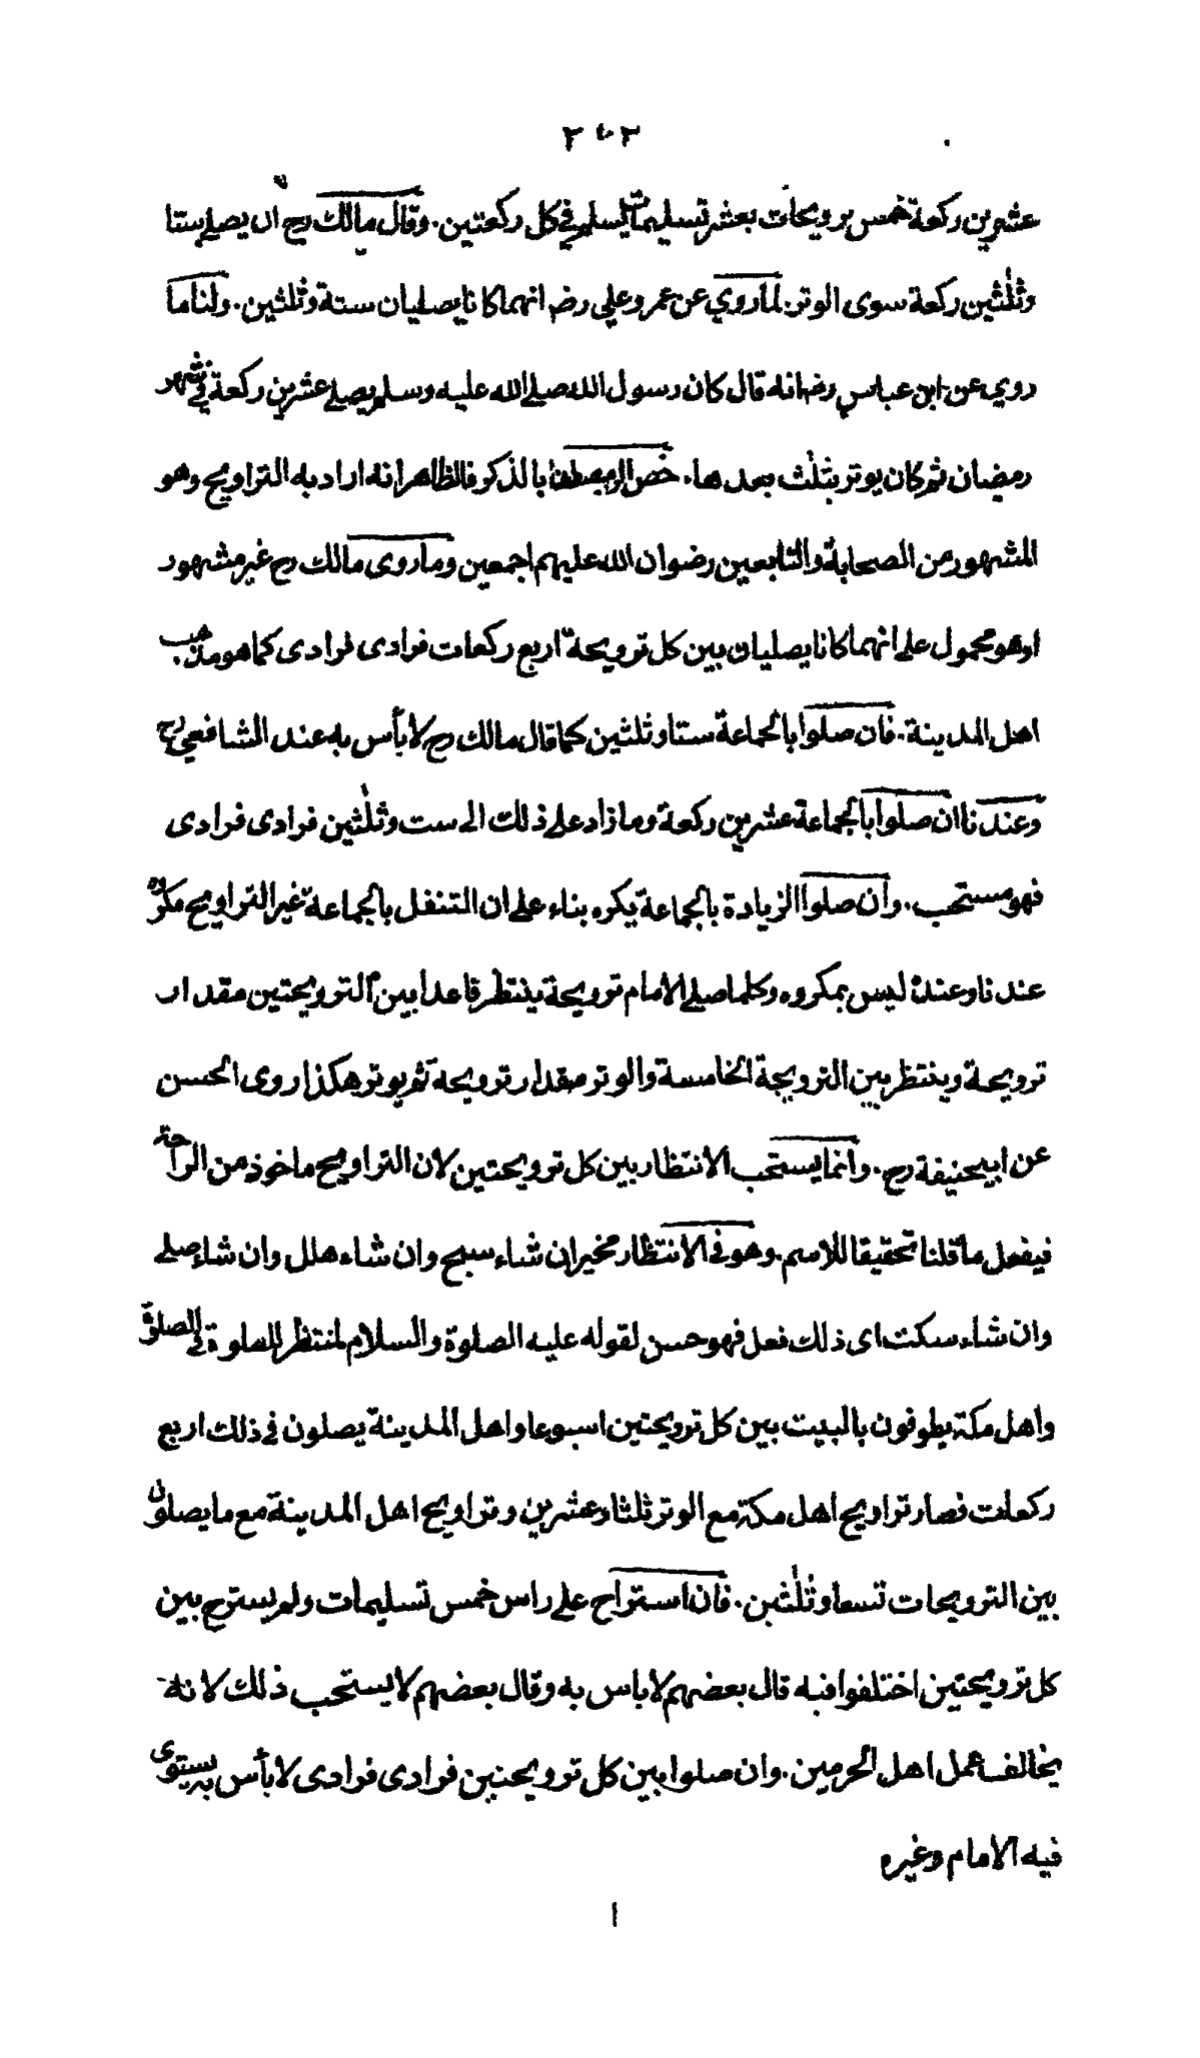 ٢٠٢
عشرين ركعة خمس ترويحات بعشر تسليمات يسلم في كل ركعتين. وقال مالك رح ان يصلي ستا
وثلثين ركعة سوى الوتر لما روي عن عمر وعلي رضه انهما كانا يصليان ستة وثلثين. ولنا ما
روي عن ابن عباس رضه انه قال كان رسول الله صلے الله عليه وسلم يصلے عشرين ركعة في شهر
رمضان ثم كان يوتر بثلث بعدها. خص بالذكر فالظاهر انه اراد به التراويح وهو
المشهور من الصحابة والتابعين رضوان الله عليهم اجمعين وما روى مالك رح غير مشهور
او هو محمول علے انهما كانا يصليان بين كل ترويحة اربع ركعات فرادى فرادى كما هو مذهب
اهل المدينة. فان صلوا بالجماعة ستا وثلثين كما قال مالك رح لا بأس به عند الشافعي رح
وعندنا ان صلوا بالجماعة عشرين ركعة وما زاد علے ذلك الے ست وثلثين فرادى فرادى
فهو مستحب. وان صلوا الزيادة بالجماعة يكره بناء علے ان التنفل بالجماعة غير التراويح مكروه
عندنا وعنده ليس بمكروه وكلما صلے الامام ترويحة ينتظر قاعدا بين الترويحتين مقدار
ترويحة وينتظر بين الترويحة الخامسة والوتر مقدار ترويحة ثم يوتر هكذا روى الحسن
عن ابيحنيفة رح. وانما يستحب الانتظار بين كل ترويحتين لان التراويح ماخوذ من الراحة
فيفعل ما قلنا تحقيقا للاسم. وهو في الانتظار مخير ان شاء سبح وان شاء هلل وان شاء صلے
وان شاء سكت اى ذلك فعل فهو حسن لقوله عليه الصلوة والسلام لمنتظر للصلوة في الصلوة
واهل مكة يطوفون بالبيت بين كل ترويحتين اسبوعا واهل المدينة يصلون في ذلك اربع
ركعات فصار تراويح اهل مكة مع الوتر ثلثا وعشرين وتراويح اهل المدينة مع ما يصلون
بين الترويحات تسعا وثلثين. فان استراح على راس خمس تسليمات ولم يسترح بين
كل ترويحتين اختلفوا فيه قال بعضهم لا باس به وقال بعضهم لا يستحب ذلك لانه
يخالف عمل اهل الحرمين. وان صلوا بين كل ترويحتين فرادى فرادى لا بأس به يستوى
فيه الامام وغيره
ا